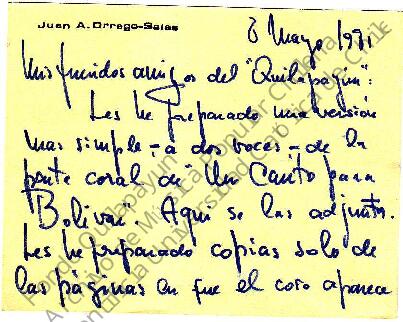 Juan A. Orrego-Salas
8 Mayo 1981
Mis queridos amigos del "Quilapayún":
Les he preparado una versión
mas simple - a dos voces - de la
parte coral de "Un Canto para
Bolivar". Aqui se las adjunto.
Les he preparado copias solo de
las páginas en que el coro aparece
Fondo Quilapayún
Archivo de Música Popular Chilena
Pontificia Universidad Católica de Chile